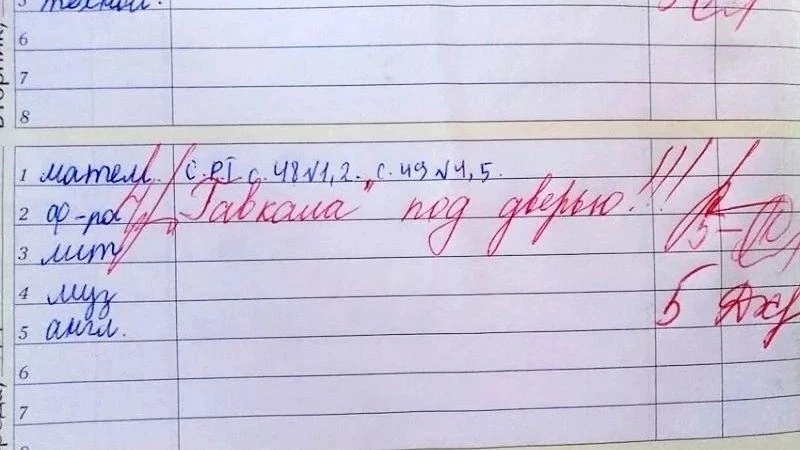 5
6
7
8
1 матем. С.РТ с.48 №1,2. с.49 №4,5.
2 ф-ра "Гавкала" под дверью!!!
3 лит 5-
4 муз
5 англ. 5
6
7